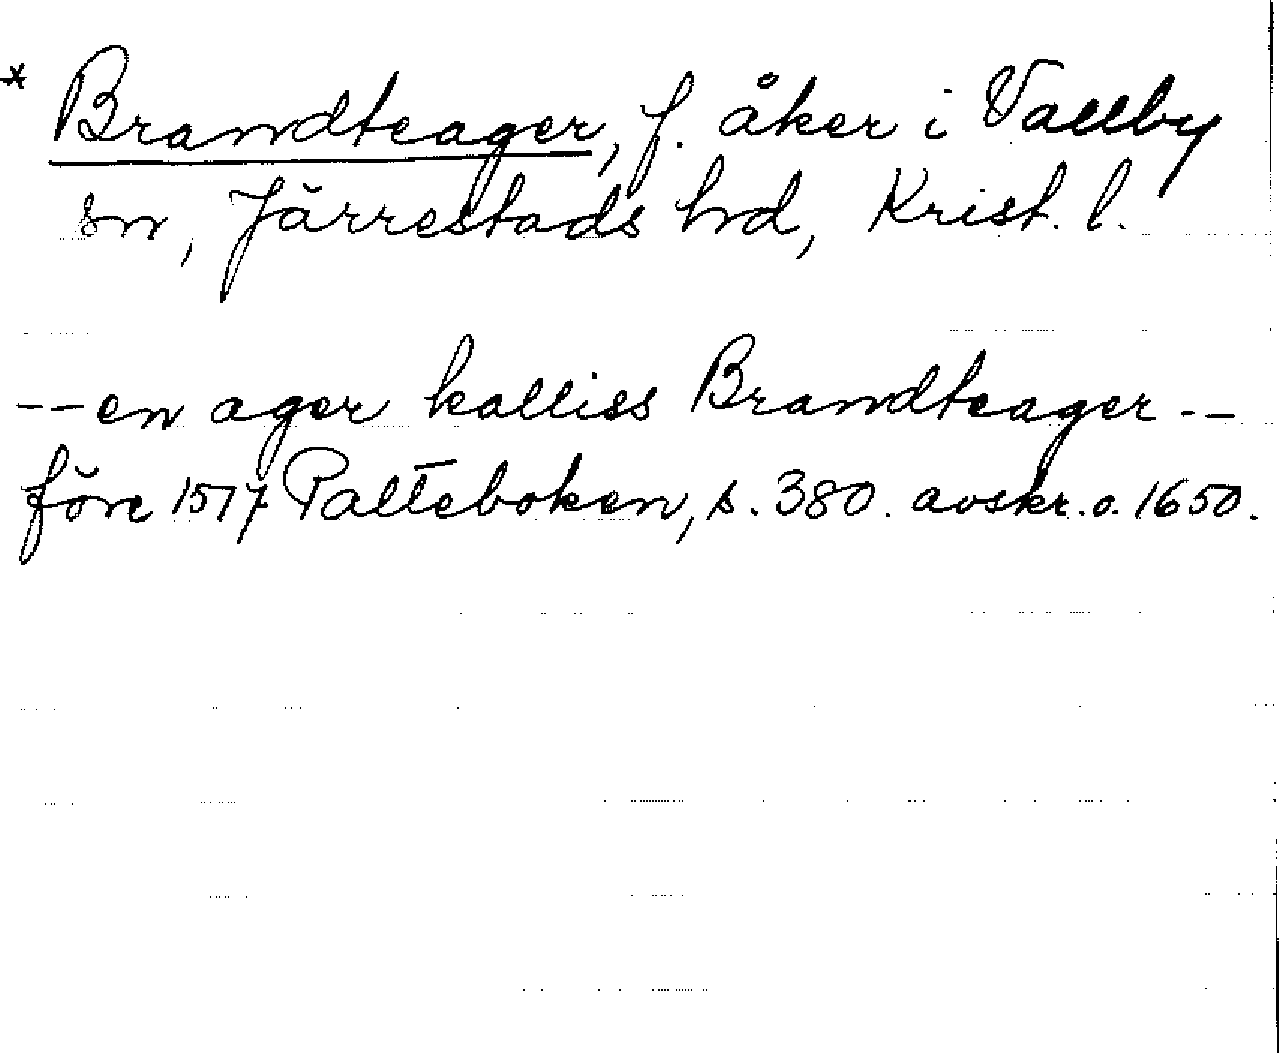 * Brandteager, f. åker i Vallby
sn, Järrestads hd, Krist. l.
--en ager kalliss Brandteager --
före 1517 Palteboken, s. 380. avskr. o. 1650.